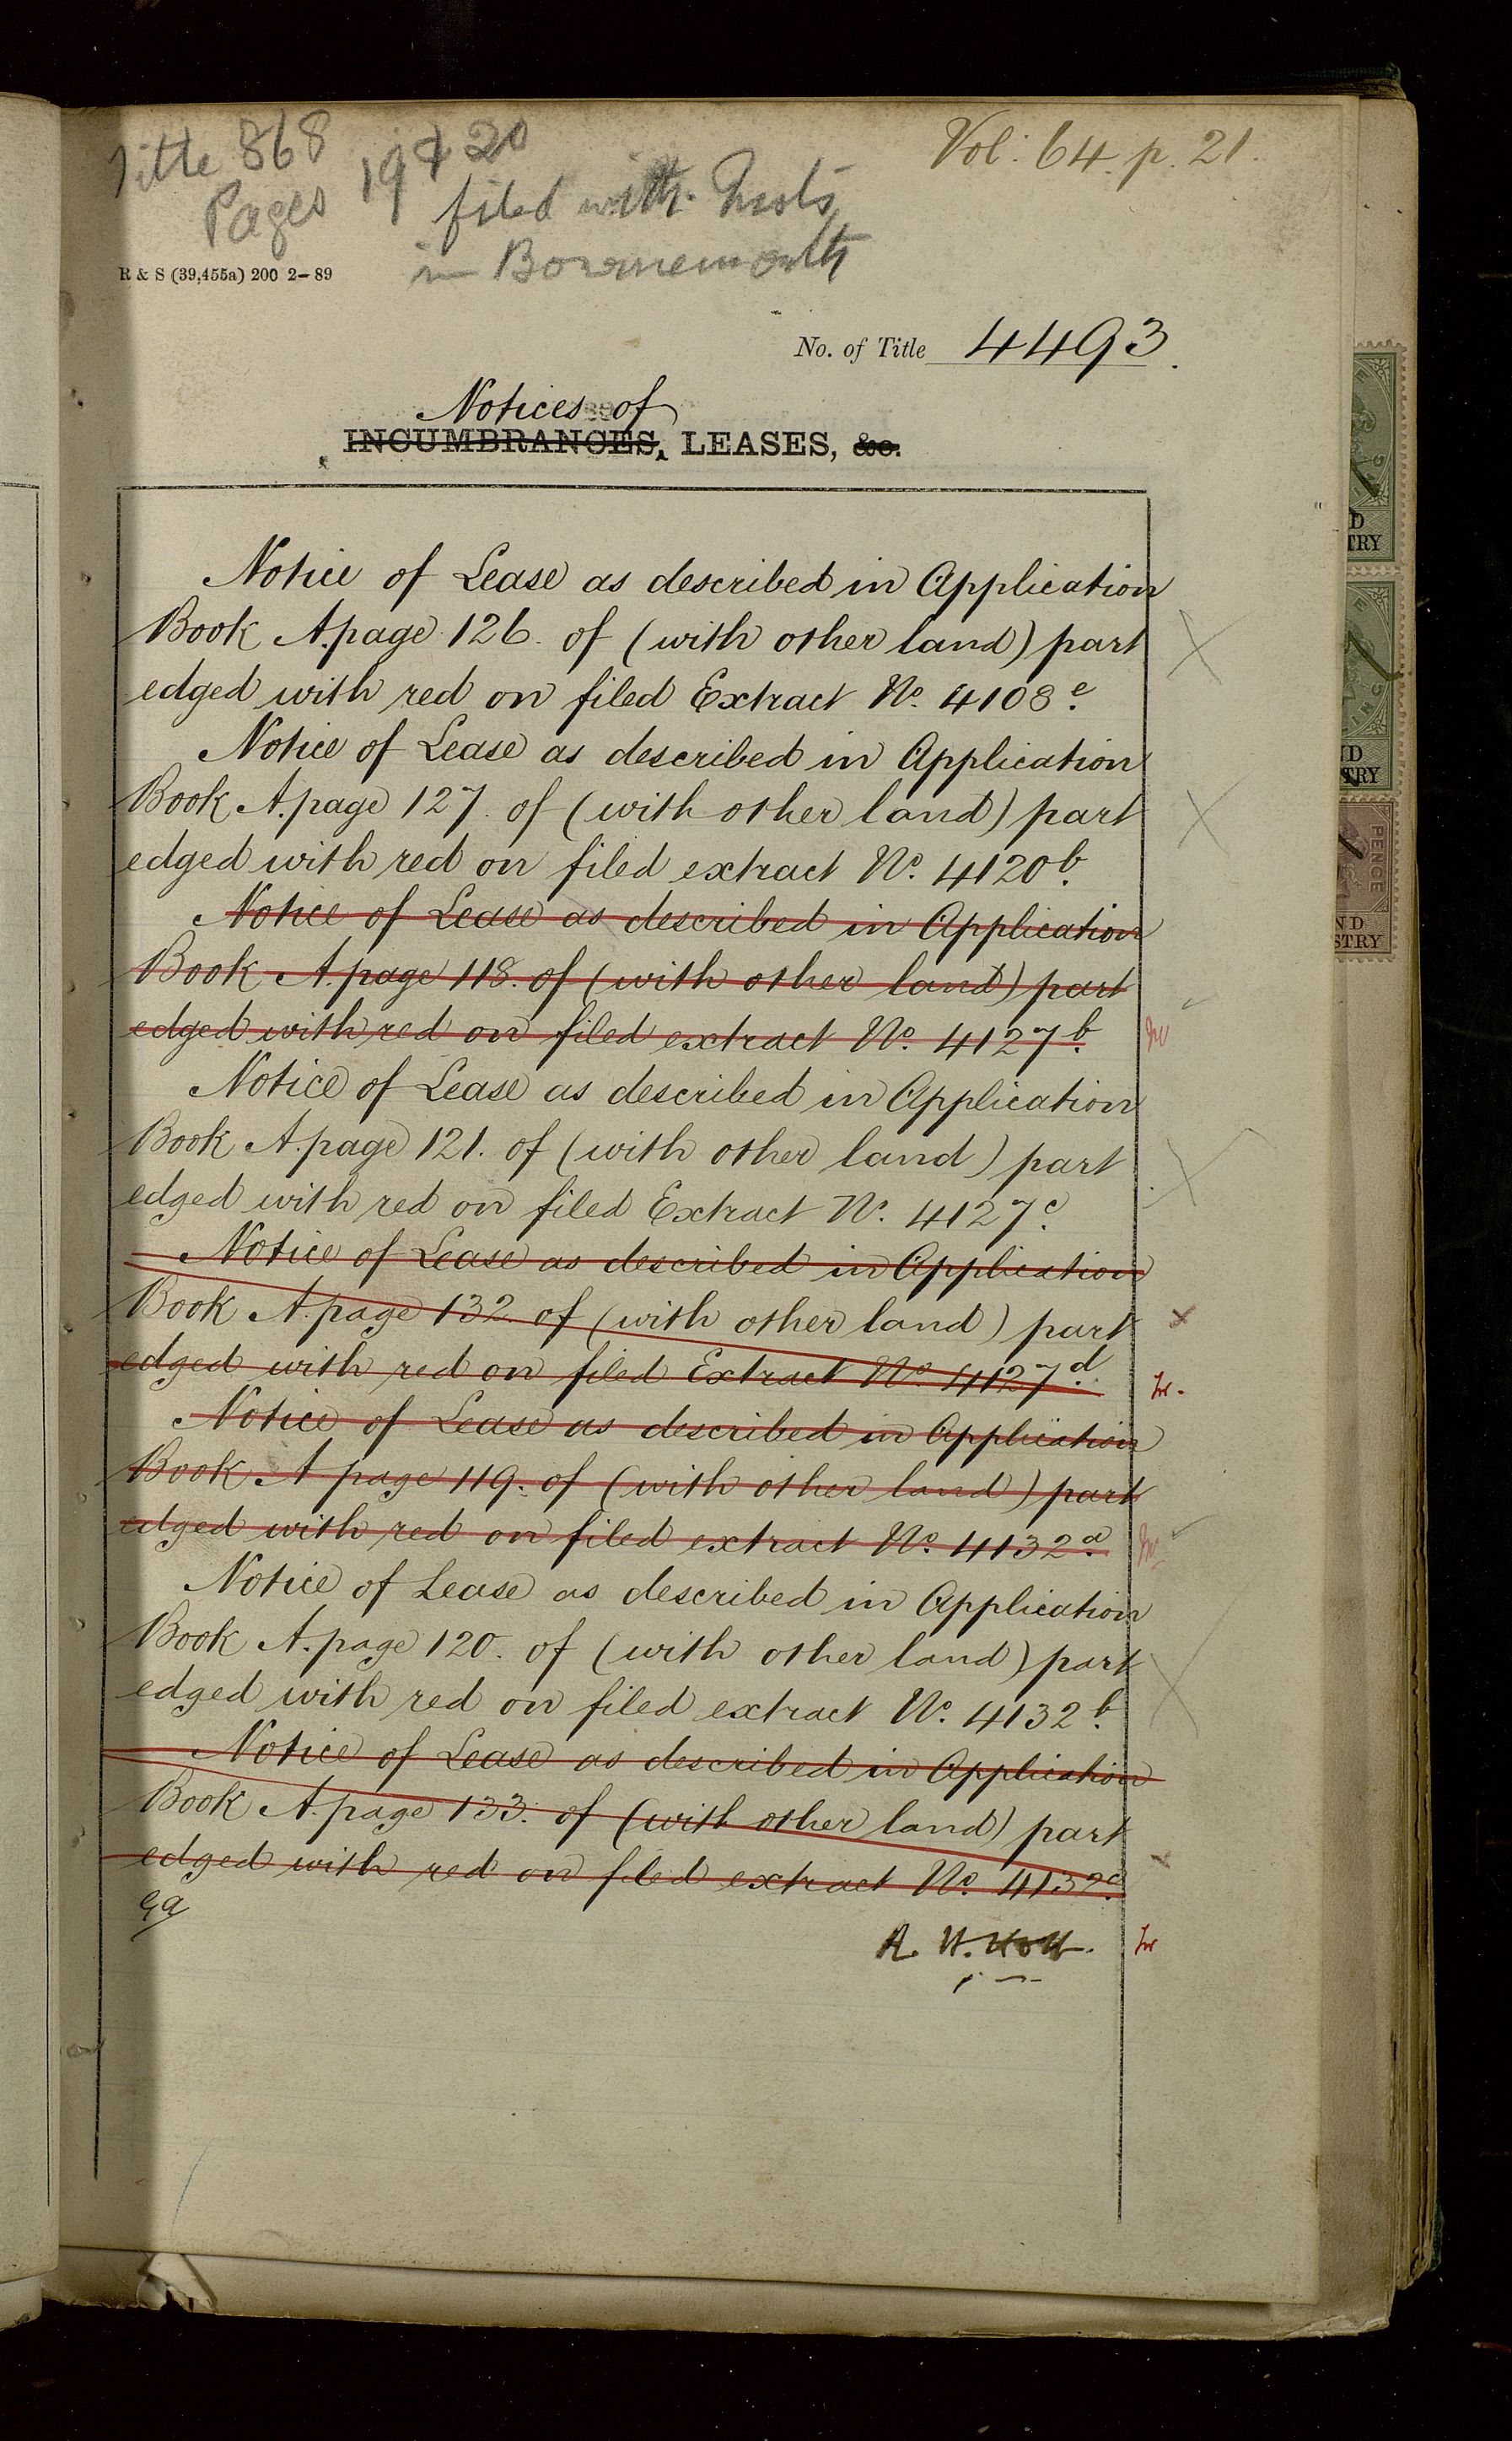 Title 868
Pages 19 & 20
filed with
in Bournemouth
Vol: 64. p. 21.
R & S (39,455a) 200 2–89
No. of Title 4493.
Notices of
INCUMBRANCES, LEASES, &c.
Notice of Lease as described in Application
Book A. page 126. of (with other land) part
edged with red on filed Extract No. 4108e.
Notice of Lease as described in Application
Book A. page 127. of (with other land) part
edged with red on filed extract No. 4120b.
Notice of Lease as described in Application
Book A. page 118. of (with other land) part
edged with red on filed extract No. 4127b.
Notice of Lease as described in Application
Book A. page 121. of (with other land) part
edged with red on filed Extract No. 4127c.
Notice of Lease as described in Application
Book A. page 132. of (with other land) part
edged with red on filed Extract No. 4127d.
Notice of Lease as described in Application
Book A page 119. of (with other land) part
edged with red on filed extract No. 4132a.
Notice of Lease as described in Application
Book A. page 120. of (with other land) part
edged with red on filed extract No. 4132b.
Notice of Lease as described in Application
Book A. page 133. of (with other land) part
edged with red on filed extract No. 4132c.
PENCE